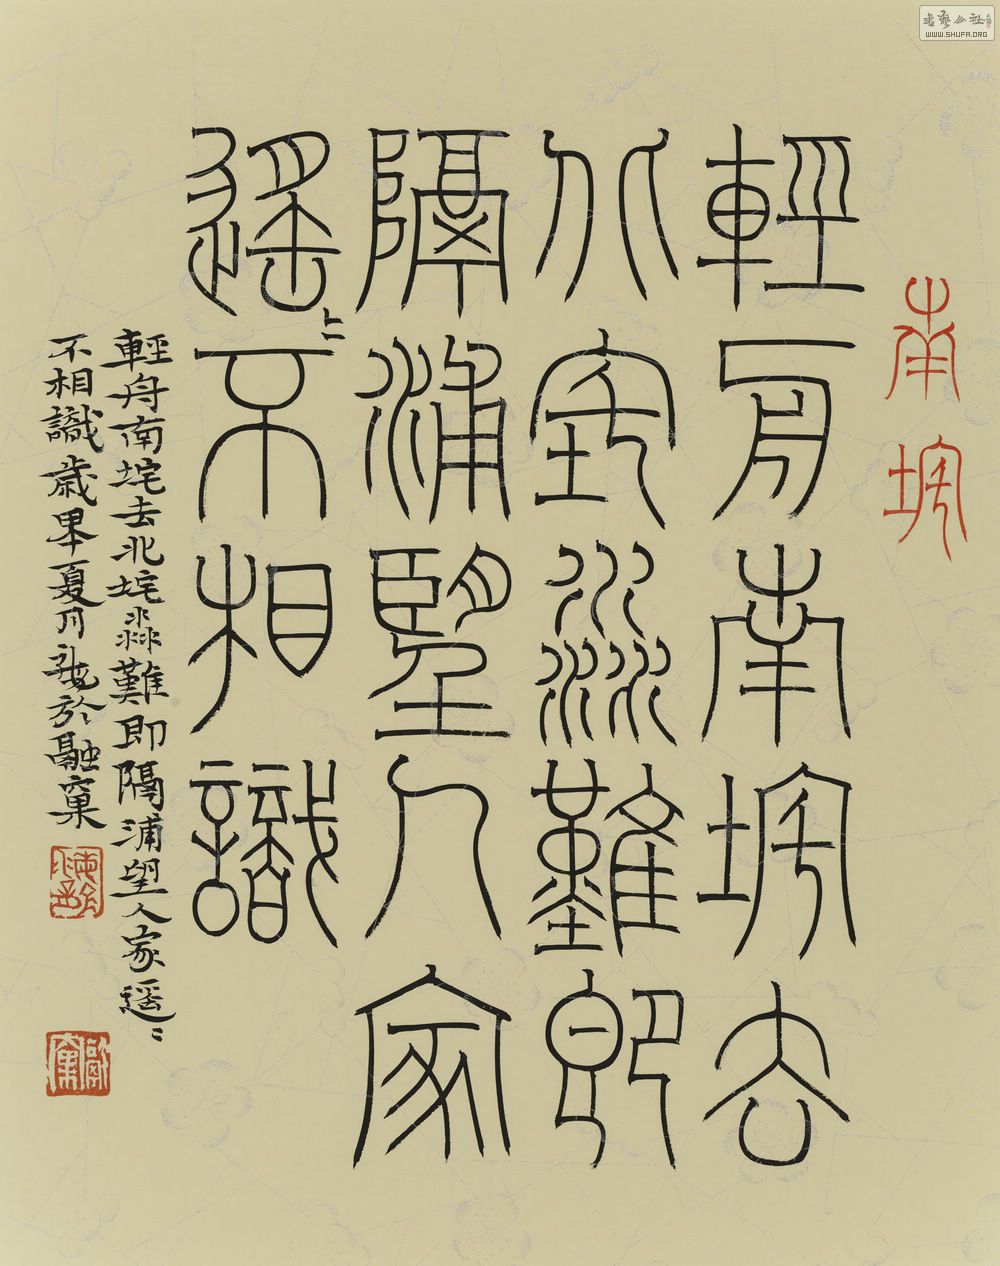 書藝公社
WWW.SHUFA.ORG
南垞
輕舟南垞去
北垞淼難即
隔浦望人家
遙〻不相識
輕舟南垞去北垞淼難即隔浦望人家遥〻
不相識歲夏月於融窠